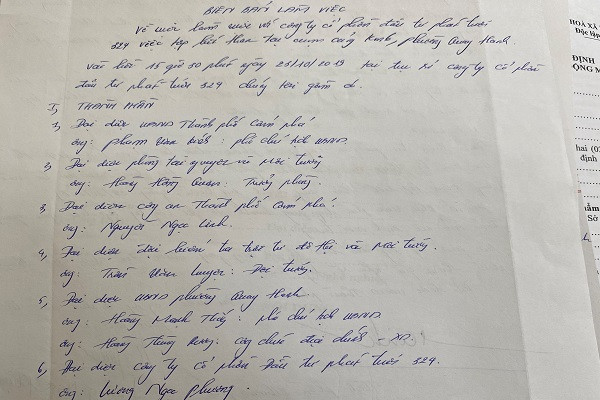 BIÊN BẢN LÀM VIỆC
Về việc làm việc với công ty cổ phần đầu tư phát triển
329 việc tập kết than tại cụm cảng Km6, phường Quang Hanh.
Vào hồi 15 giờ 30 phút ngày 23/10/2019 tại trụ sở công ty cổ phần
đầu tư phát triển 329 chúng tôi gồm có.
I, THÀNH PHẦN
1, Đại diện UBND Thành phố Cẩm phả
ông: phạm Văn : phó chủ tịch UBND.
2, Đại diện phòng tài nguyên và Môi trường
ông: Hoàng Hồng Quân: Trưởng phòng.
3, Đại diện công an Thành phố Cẩm phả.
ông: Nguyễn Ngọc Linh.
4, Đại diện đội kiểm tra trật tự đô thị và Môi trường.
ông: Trần Văn Luyện: Đội trưởng.
5, Đại diện UBND phường Quang Hanh.
ông: Hoàng Mạnh : phó chủ tịch UBND.
ông: Hoàng Trung : công chức địa chính - XD.
6, Đại diện công ty cổ phần Đầu tư phát triển 329.
ông: Lương Ngọc phương.
HOÀ XÃ
Độc lập
ĐỊNH
ỌNG M
hai (0
định
Sở